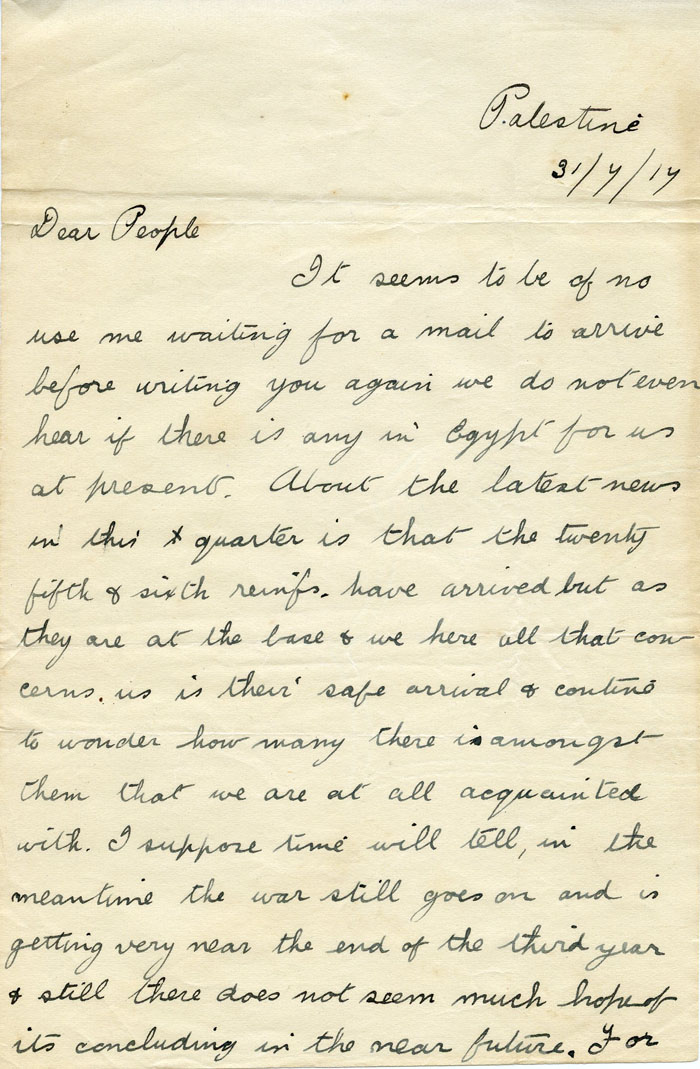 Palestine
31/7/17
Dear People
It seems to be of no
use me waiting for a mail to arrive
before writing you again we do not even
hear if there is any in Egypt for us
at present. About the latest news
in this quarter is that the twenty
fifth & sixth reinfs. have arrived but as
they are at the base & we here all that con-
cerns. us is their safe arrival & contine
to wonder how many there is amongst
them that we are at all acquainted
with. I suppose time will tell, in the
meantime the war still goes on and is
getting very near the end of the third year
& still there does not seem much hope of
its concluding in the near future. For